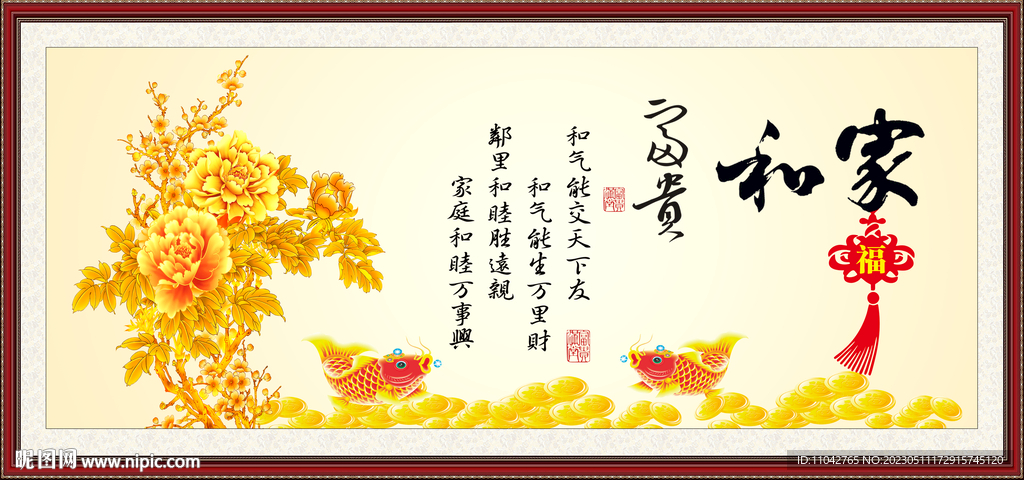 家和
富貴
福
和气能交天下友
和气能生万里财
鄰里和睦胜遠親
家庭和睦万事興
昵图网 www.nipic.com
ID:11042765 NO:20230511172915745120